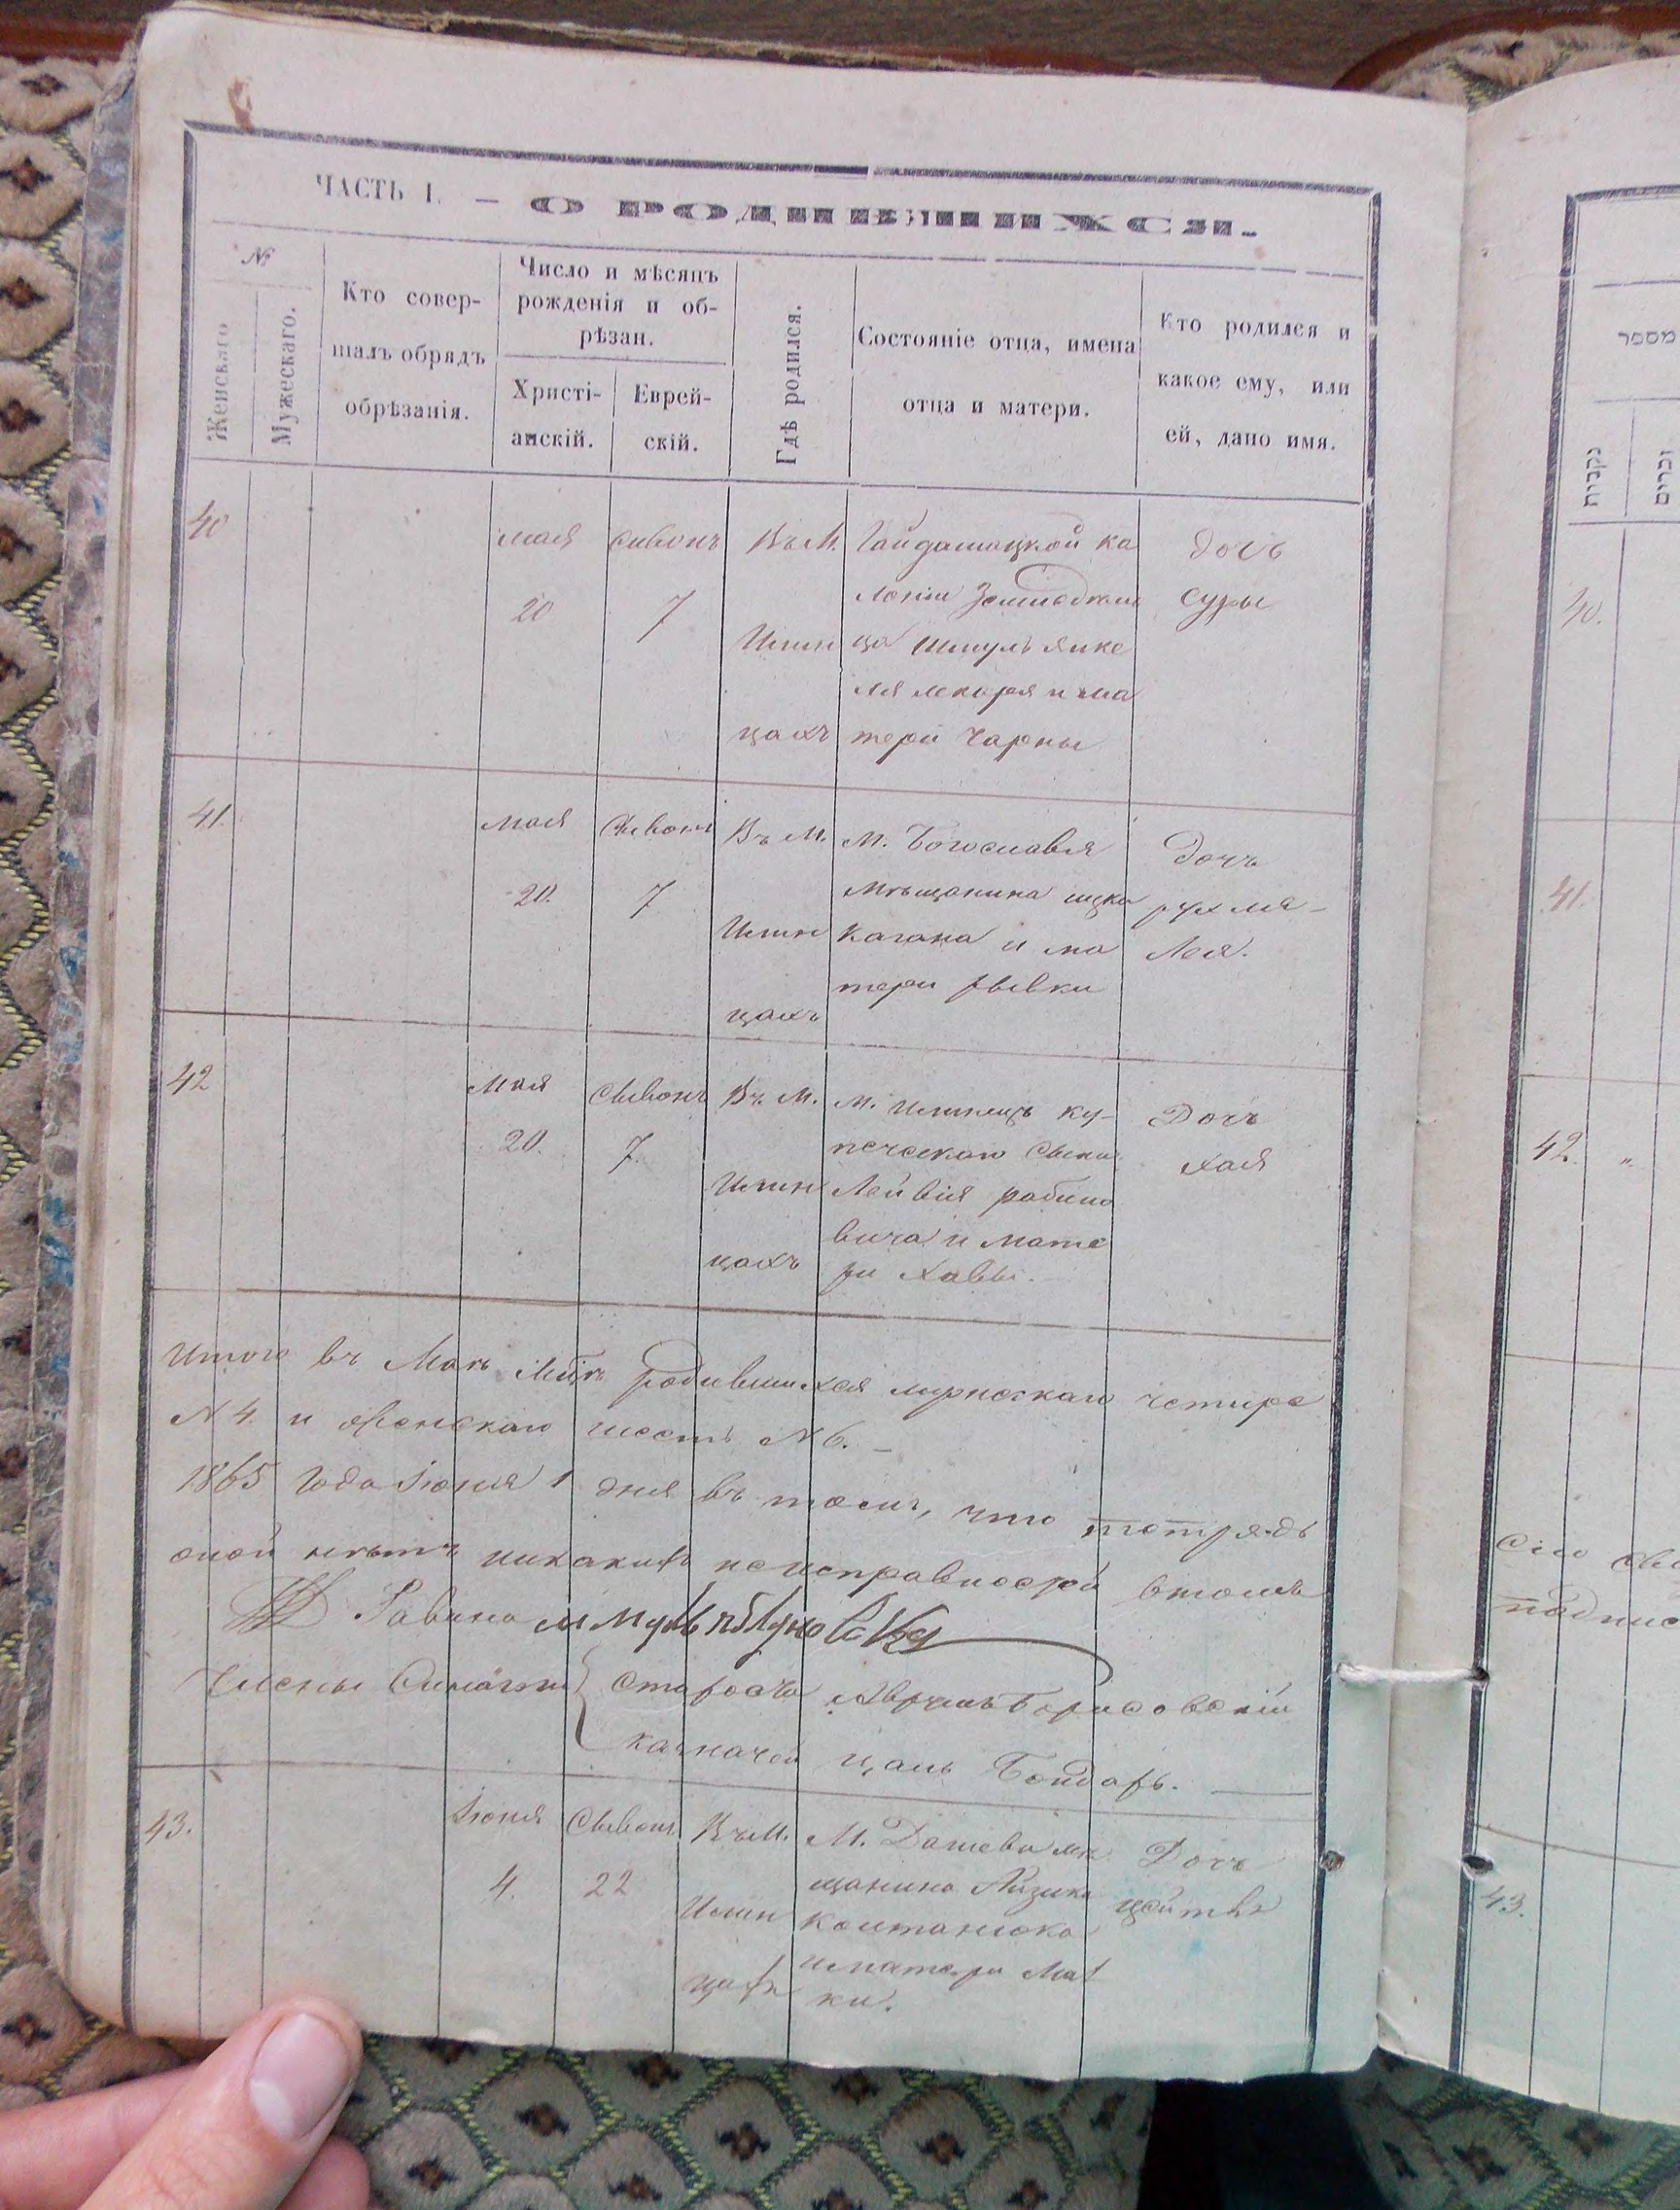 ЧАСТЬ I. — О РОДИВШИХСЯ.
№
Женскаго
Мужескаго.
Кто совер-
шалъ обрядъ
обрѣзанія.
Число и мѣсяцъ
рожденія и об-
рѣзан.
Христі-
анскій.
Еврей-
скій.
Гдѣ родился.
Состояніе отца, имена
отца и матери.
Кто родился и
какое ему, или
ей, дано имя.
40
мая
20
сивонъ
7
Въ М.
Илин
цахъ
Гайдамацкой ка
лоніи
ца Шмуль Янке
ля лекаря и ма
тери Чарны
дочь
суры
41.
мая
20.
Сивонъ
7
Въ М.
Илин
цахъ
М. Богославля
мѣщанина ицка
Кагана и ма
тери рывки
дочь
рухля-
Лея.
42
Мая
20.
Сывонъ
7.
Въ М.
Илин
цахъ
М. Илинецъ ку-
печескаго сына
Лейвія рабино
вича и мате
ри Хавы.
Дочь
Хая
Итого въ Маѣ мцѣ родившихся мужескаго четире
№ 4. и женскаго шесть № 6. —
1865 года Іюня 1 дня въ томъ, что
оной нѣтъ никакихъ неисправностей втомъ
Равина
Члены Синагоги
староста Аврумъ Борисовскій
казначей цаль Бондарь.
43.
Іюня
4.
Сывонъ
22
Въ М.
Илин
цахъ
М. Дашева мѣ
щанина Айзика
Колтанюка
иматери Мал
ки.
Дочь
מספר
נקבות
זכרים
40.
41.
42.
"
43.